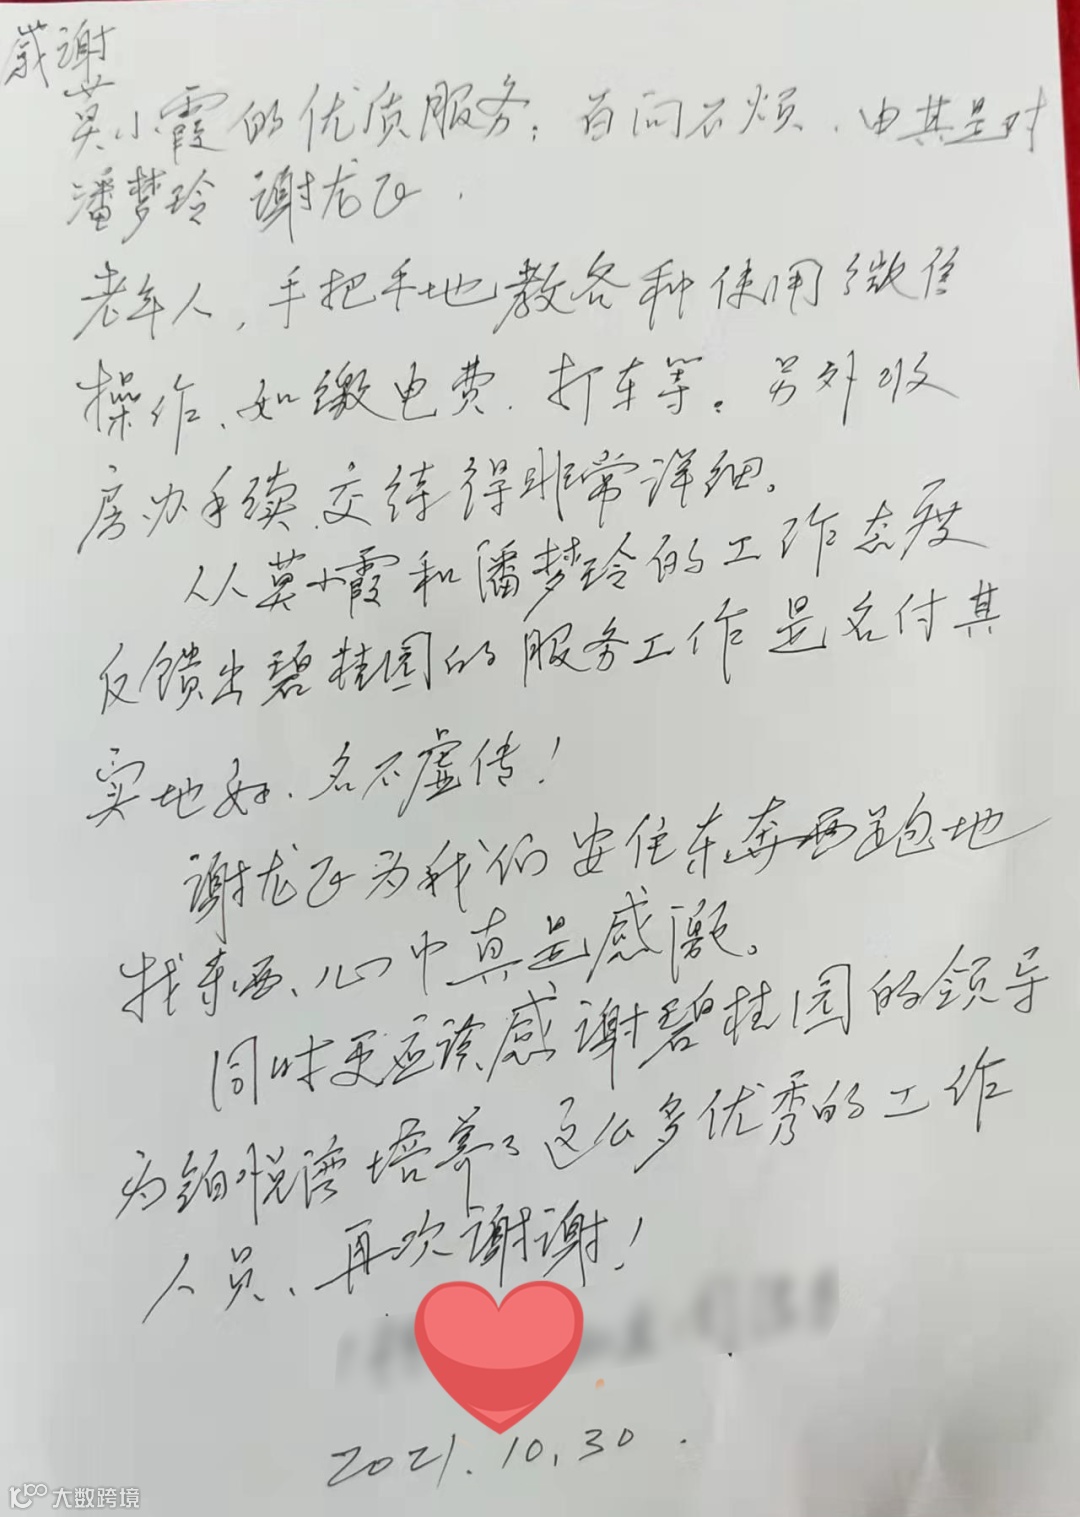 感谢
莫小霞的优质服务；百问不烦、由其是对
潘梦玲 谢龙正.
老年人，手把手地教各种使用微信
操作、如缴电费、打车等。另外收
房办手续、交待得非常详细。
从莫小霞和潘梦玲的工作态度
反馈出碧桂园的服务工作是名付其
实地好、名不虚传！
谢龙正为我们安住东奔西跑地
找东西、心中真是感激。
同时更应该感谢碧桂园的领导
为铂悦湾培养了这么多优秀的工作
人员、再次谢谢！
2021.10.30.
大数跨境